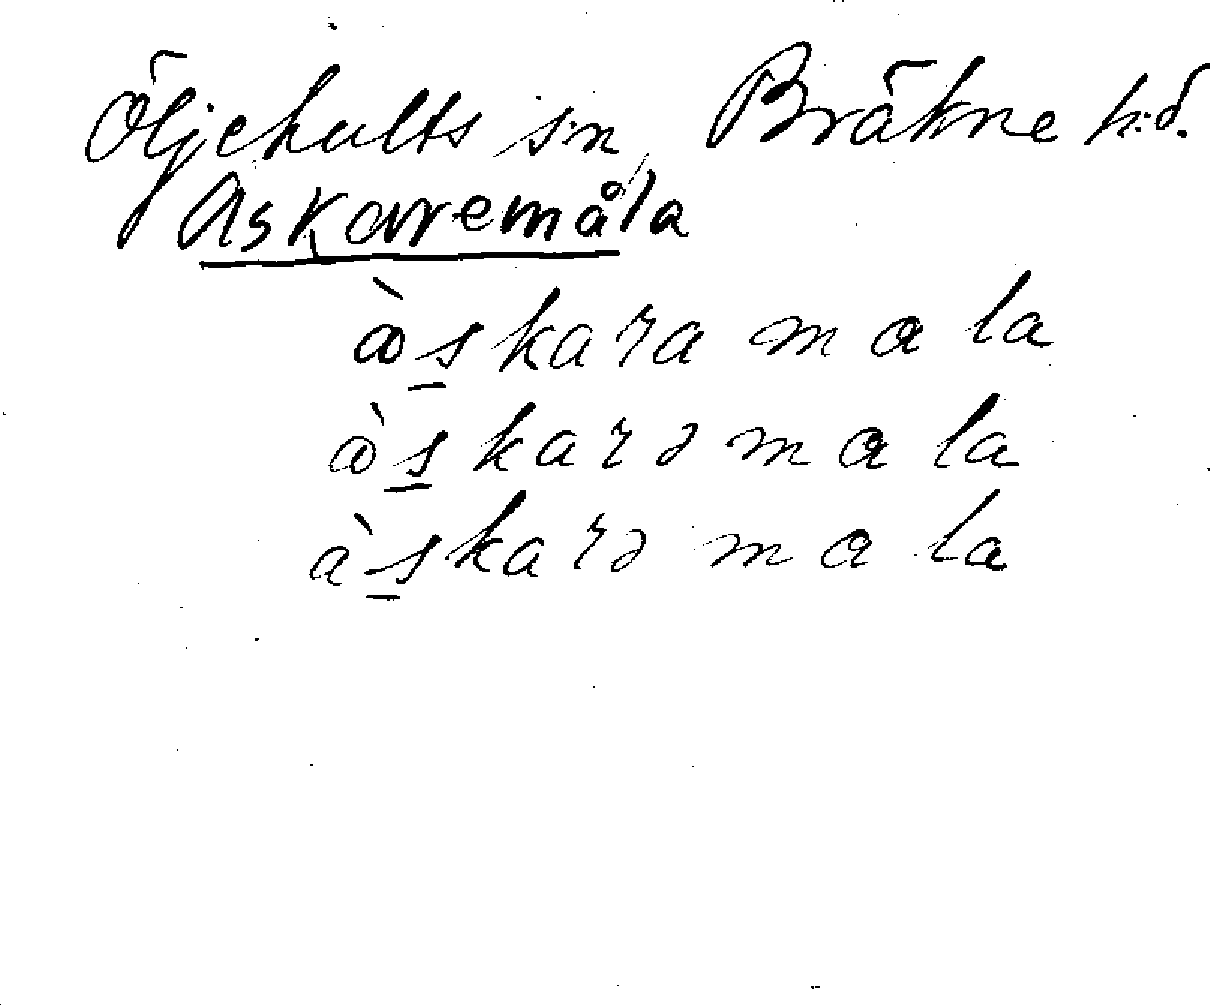 Öljehults s:n, Bräkne h:d.
Askaremåla
àskara mɑla
àskarə mɑla
àskarə mɑla